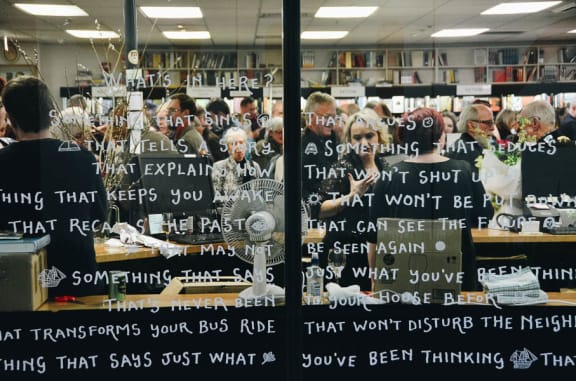 WHAT'S IN HERE?
SOMETHING THAT SINGS THAT
THAT TELLS A STORY SOMETHING THAT SEDUCES
THAT EXPLAINS HOW THAT WON'T SHUT UP
THING THAT KEEPS YOU AWAKE THAT WON'T BE PUT
THAT RECALLS THE PAST THAT CAN SEE THE FUTURE
MAY NOT BE SEEN AGAIN
SOMETHING THAT SAYS JUST WHAT YOU'VE BEEN THINKING
THAT'S NEVER BEEN IN YOUR HOUSE BEFORE
HAT TRANSFORMS YOUR BUS RIDE THAT WON'T DISTURB THE NEIGH
THING THAT SAYS JUST WHAT YOU'VE BEEN THINKING THA